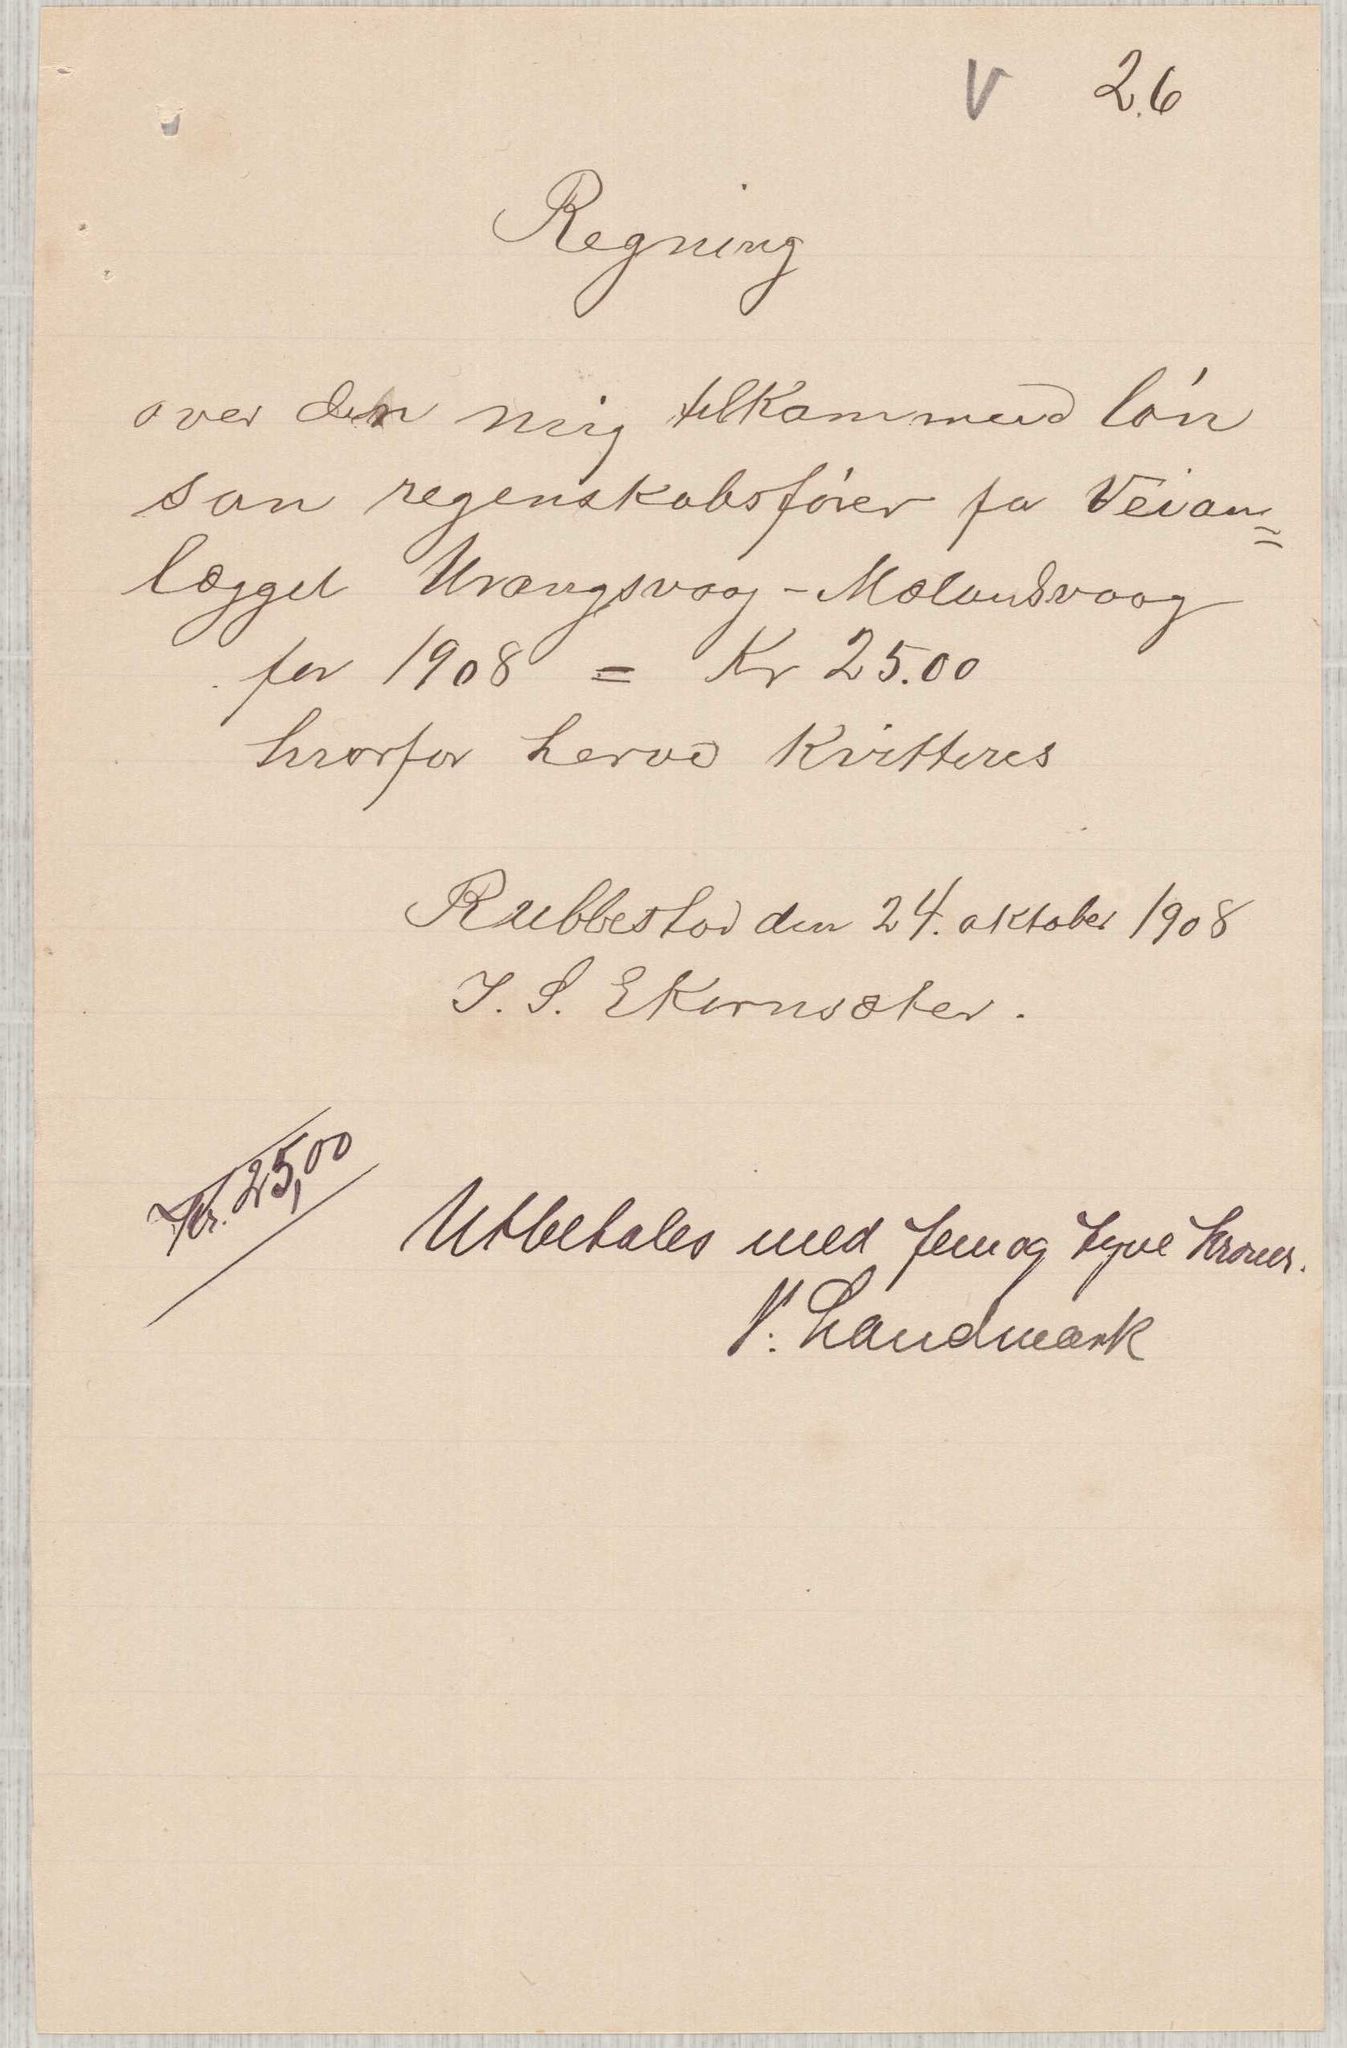 V 26
Regning
over den mig tilkommend lón
som regenskabsfórer for Veian=
lægget Urangsvaag - Mælandsvaag
for 1908 = Kr 25.00
hvorfor herved Kvitteres
Rubbestad den 24. oktober 1908
I. S. Ekornsæter.
Kr. 25,00
Utbetales med fem og tyve kroner.
N. Landmark